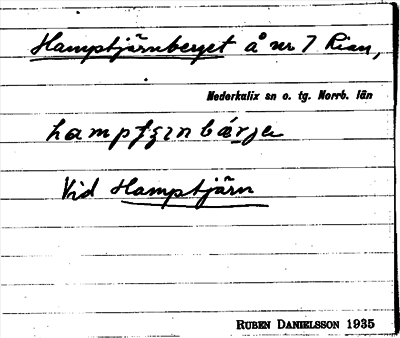 Hamptjärnberget å nr 7 Rian,
Nederkalix sn o. tg. Norrb. län
Vid Hamptjärn
RUBEN DANIELSSON 1935